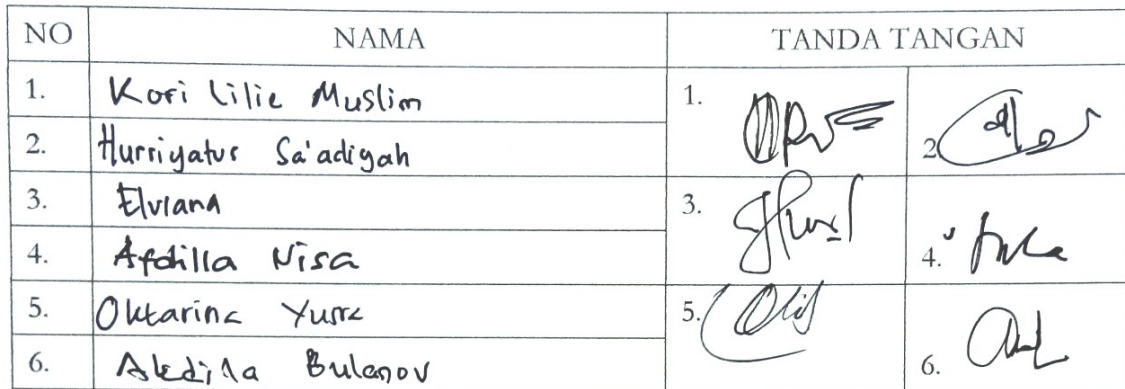 NO NAMA TANDA TANGAN
1. Kori Lilie Muslim 1.
2. Hurriyatus Sa'adiyah 2
3. Elviana 3.
4. Afdilla Nisa 4.
5. Oktarina Yusra 5.
6. Bulanov 6.